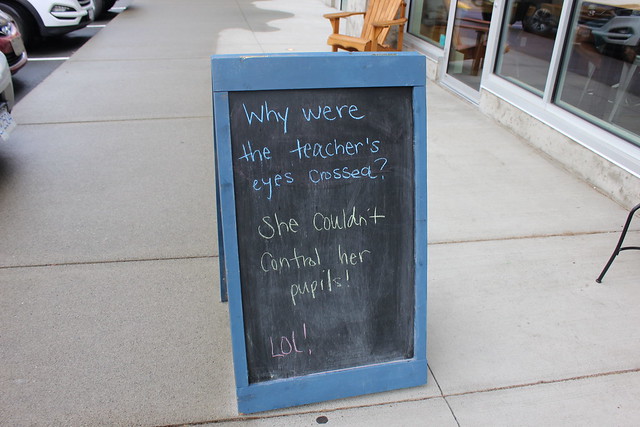 Why were
the teacher's
eyes crossed?
She couldn't
control her
pupils!
LOL!